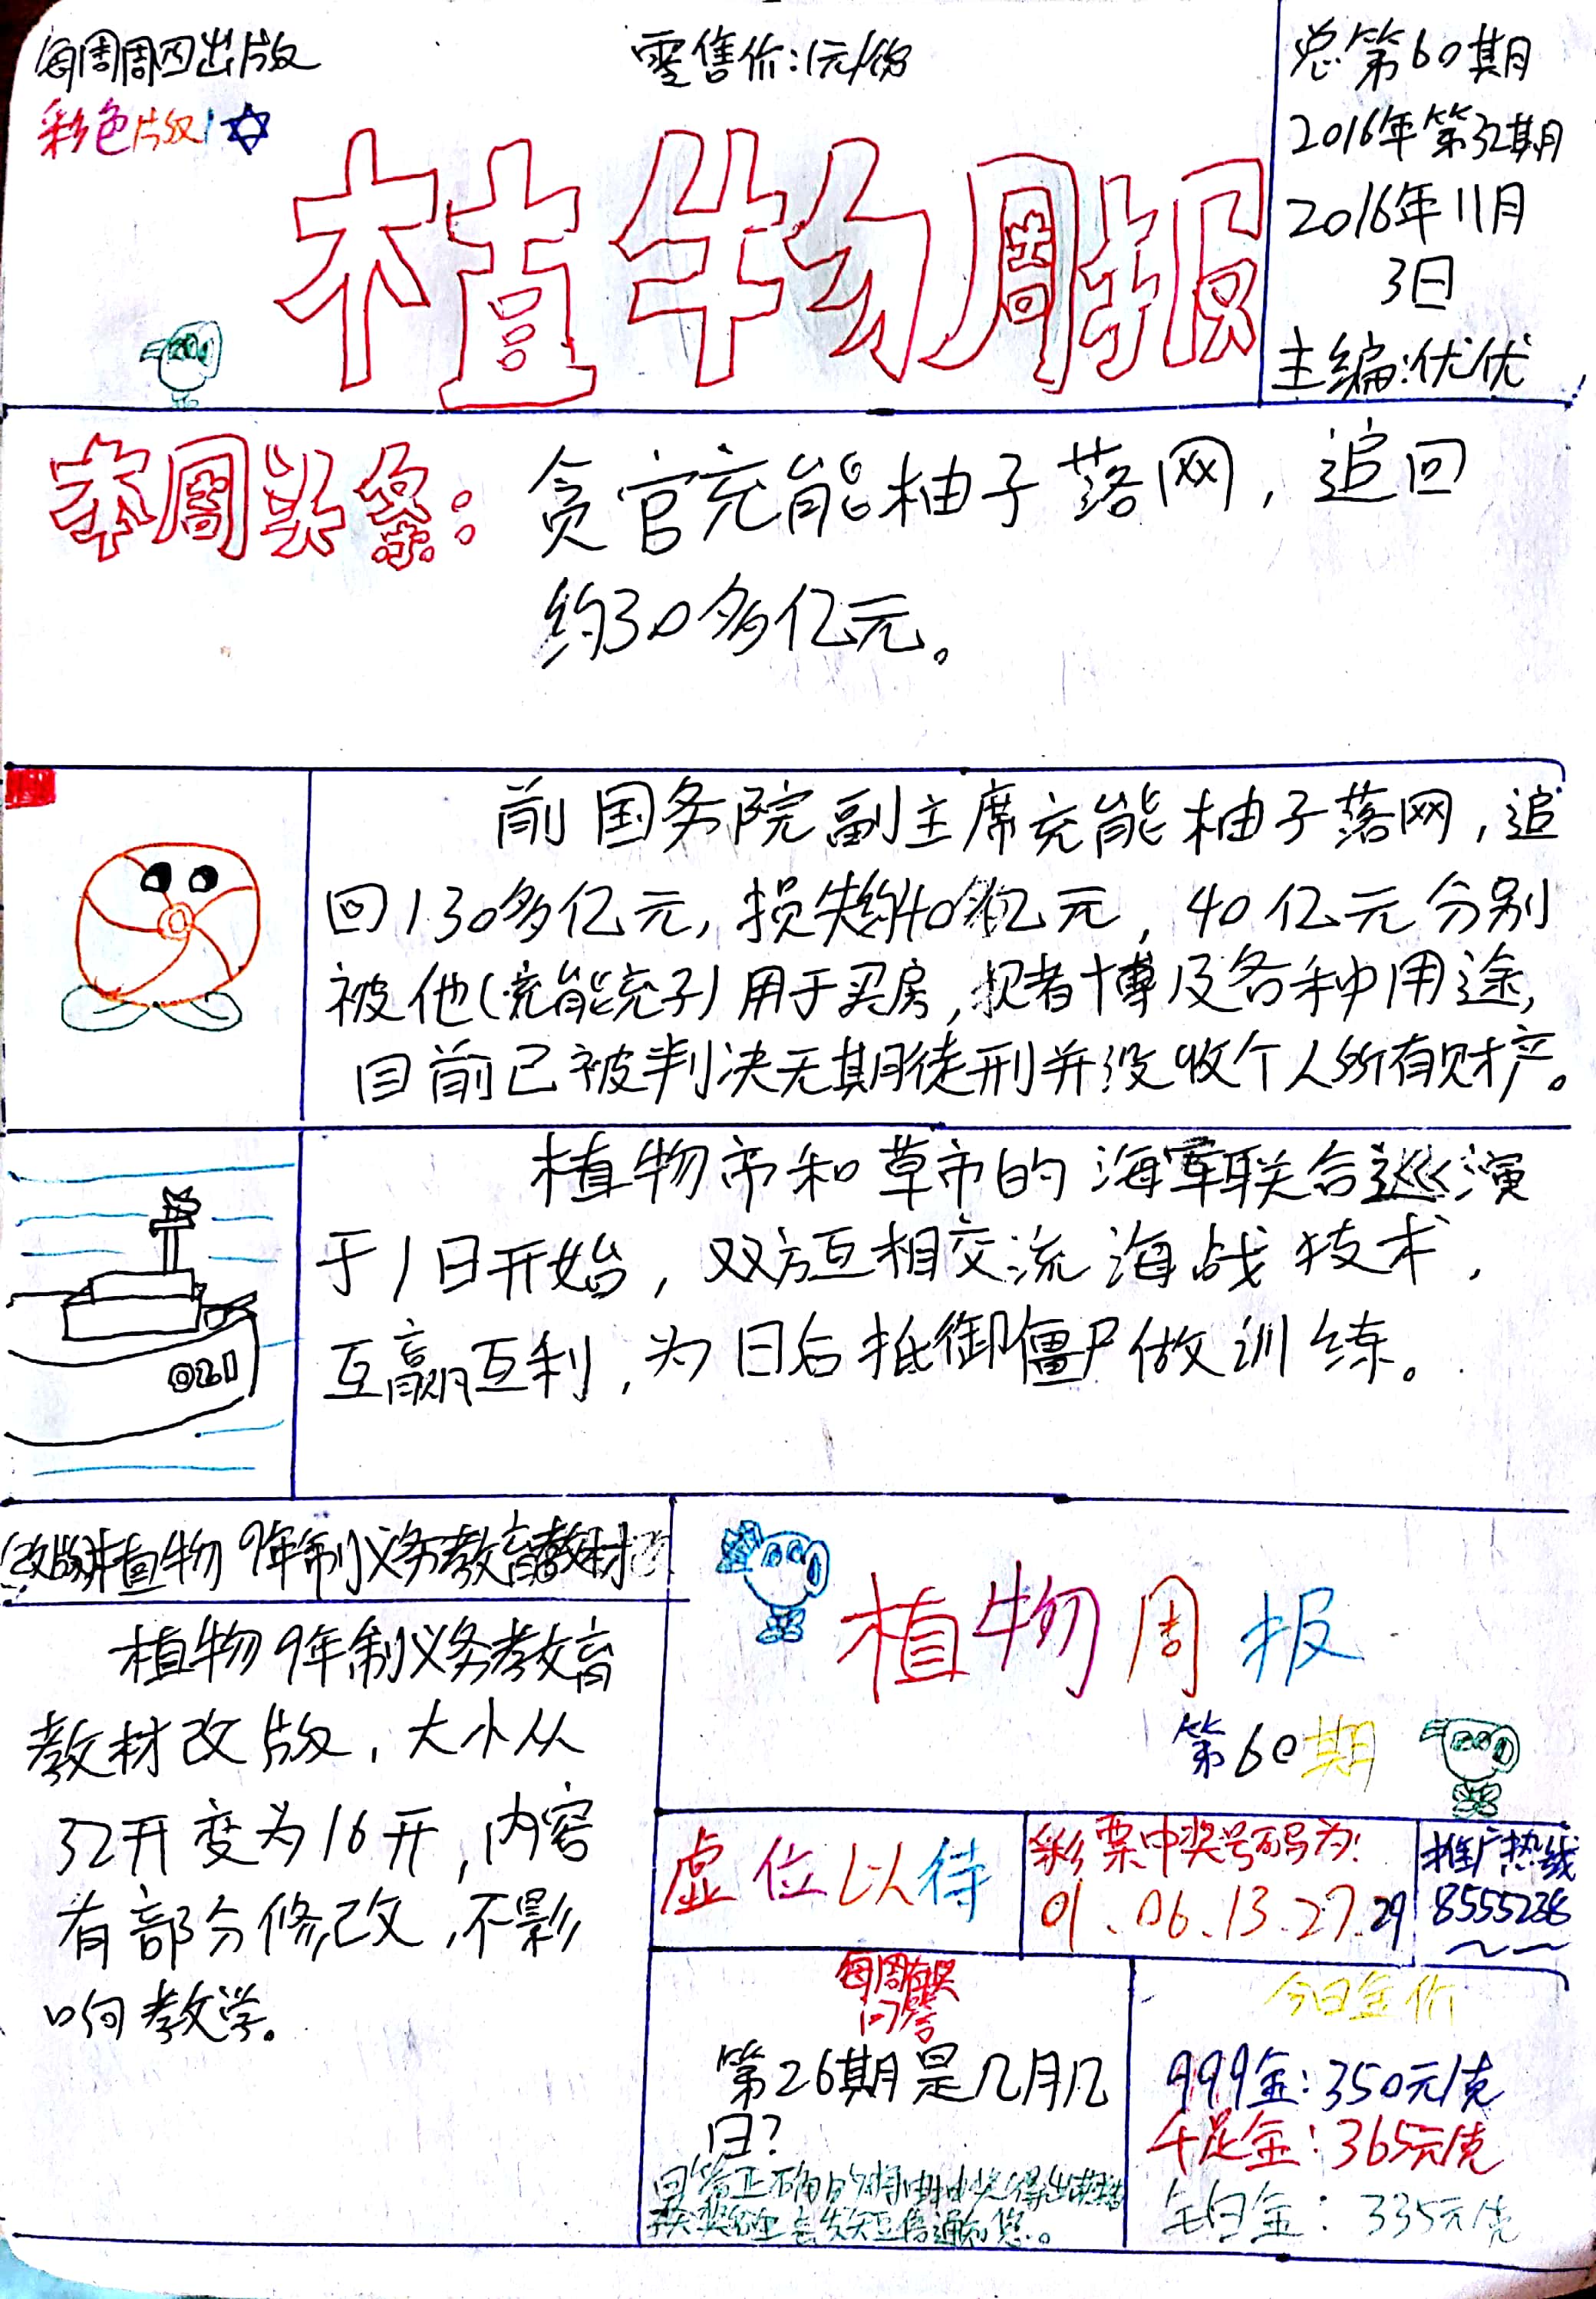 每周周四出版
彩色版!
零售价:1元/份
植物周报
总第60期
2016年第32期
2016年11月
3日
主编:优优
本周头条:
贪官充能柚子落网,追回
约30多亿元。
前国务院副主席充能柚子落网,追
回130多亿元,损失约40多亿元,40亿元分别
被他(充能充子)用于买房,赌博及各种用途,
目前已被判决无期徒刑并没收个人所有财产。
植物市和草市的海军联合巡演
于1日开始,双方互相交流海战技术,
互赢互利,为日后抵御僵尸做训练。
021
植物9年制义务教育教材
植物9年制义务教育
教材改版,大小从
32开变为16开,内容
有部分修改,不影
响教学。
植物周报
第60期
虚位以待
彩票中奖号码为:
01.06.13.27.29
推广热线
8555238
每周有奖
问答
第26期是几月几
日?
回答正确的将由抽奖得出
通知您。
今日金价
999金:350元/克
千足金:365元/克
白金:335元/克